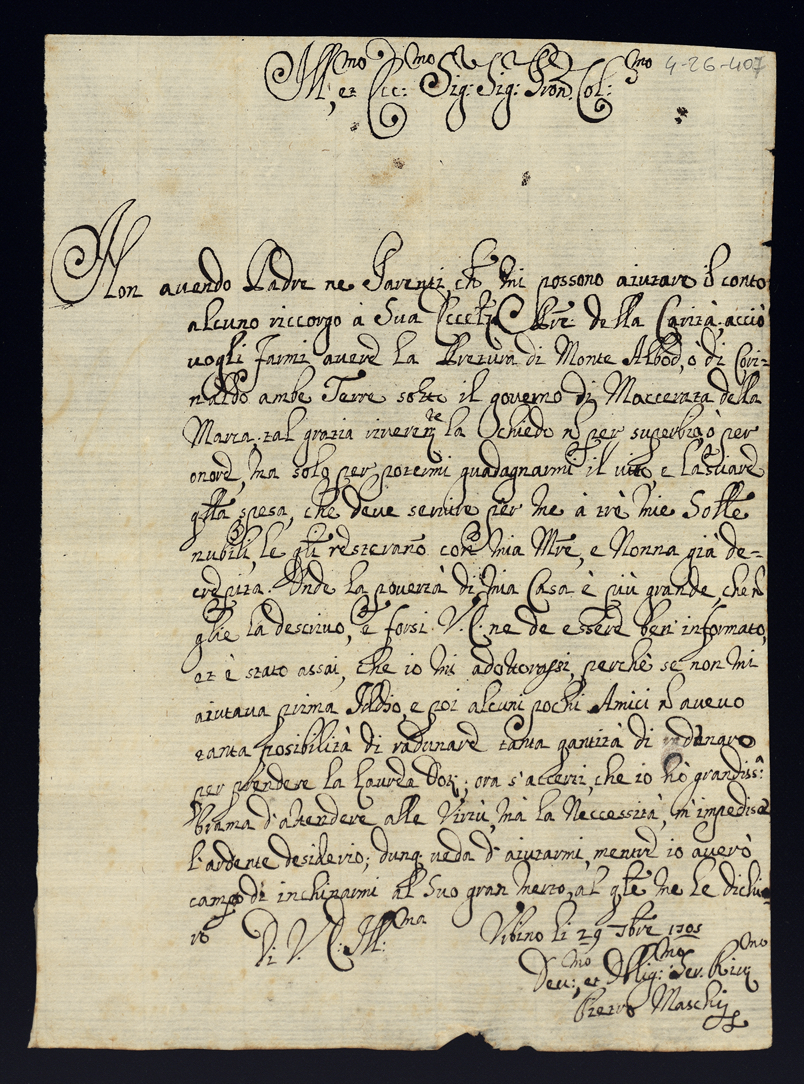 Ill:mo, et Ecc:mo Sig: Sig: Pron. Col:mo
4-26-407
Non avendo Padre ne Parenti, ch' mi possono aiutare il conto
alcuno riccorgo à Sua Ecce Pre della Carità, acciò
vogli farmi avere la Pretura di Monte Albod, ò di Cori=
naldo ambe Terre sotto il governo di Maccerata della
Marca, tal grazia riverente la Chiedo nõ per superbia, ò per
onore, ma solo per potermi guadagnarmi il vitto, e lasciare
qlla spesa, che deve servire per me à trè mie Solle
nubili, le qli resterano con mia Mre, e Nonna già de=
crepita. Onde la povertà di mia Casa è più grande che nõ
glie la descrivo, e forsi V.E. ne de essere ben informato,
et è stato assai, che io mi adottorassi, perche se non mi
aiutava prima Iddio, e poi alcuni pochi Amici nõ avevo
tanta posibilità di radunare tanta qantità di
per prendere la Laurea Dot; ora s'accerti, che io hò grandiss:a
brama d'attendere alle Virtù, mà la Neccessità, m'impedisce
l'ardente desiderio; dunq veda d'aiutarmi, mentre io averò
campo di inchinarmi al Suo gran Merto, al qle me le dichia
ro Di V. E. Ill:ma Urbino li 29 7bre 1705
Dev:mo, et Oblig:mo Ser. 
Pietro Maschij